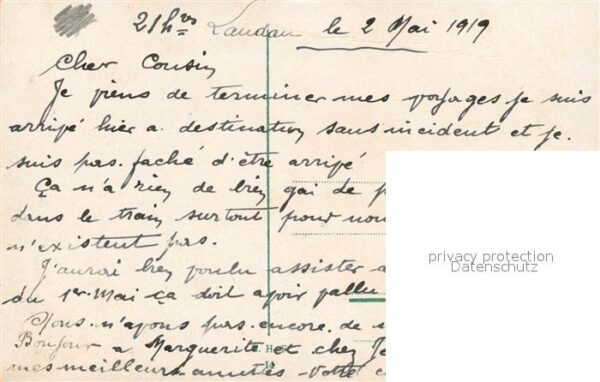 21hres Landau le 2 Mai 1919
Cher Cousin
Je viens de terminer mes voyages je suis
arrivé hier a destination sans incident et je
suis pas faché d'être arrivé
Ça n'a rien de bien gai de p
dans le train surtout pour nou
n'existent pas.
J'aurai bien voulu assister a
du 1er Mai ça doit avoir vallu
Nous n'avons pas encore de
Bonjour a Marguerite et chez Je
mes meilleurs amitiés votre c
privacy protection
Datenschutz